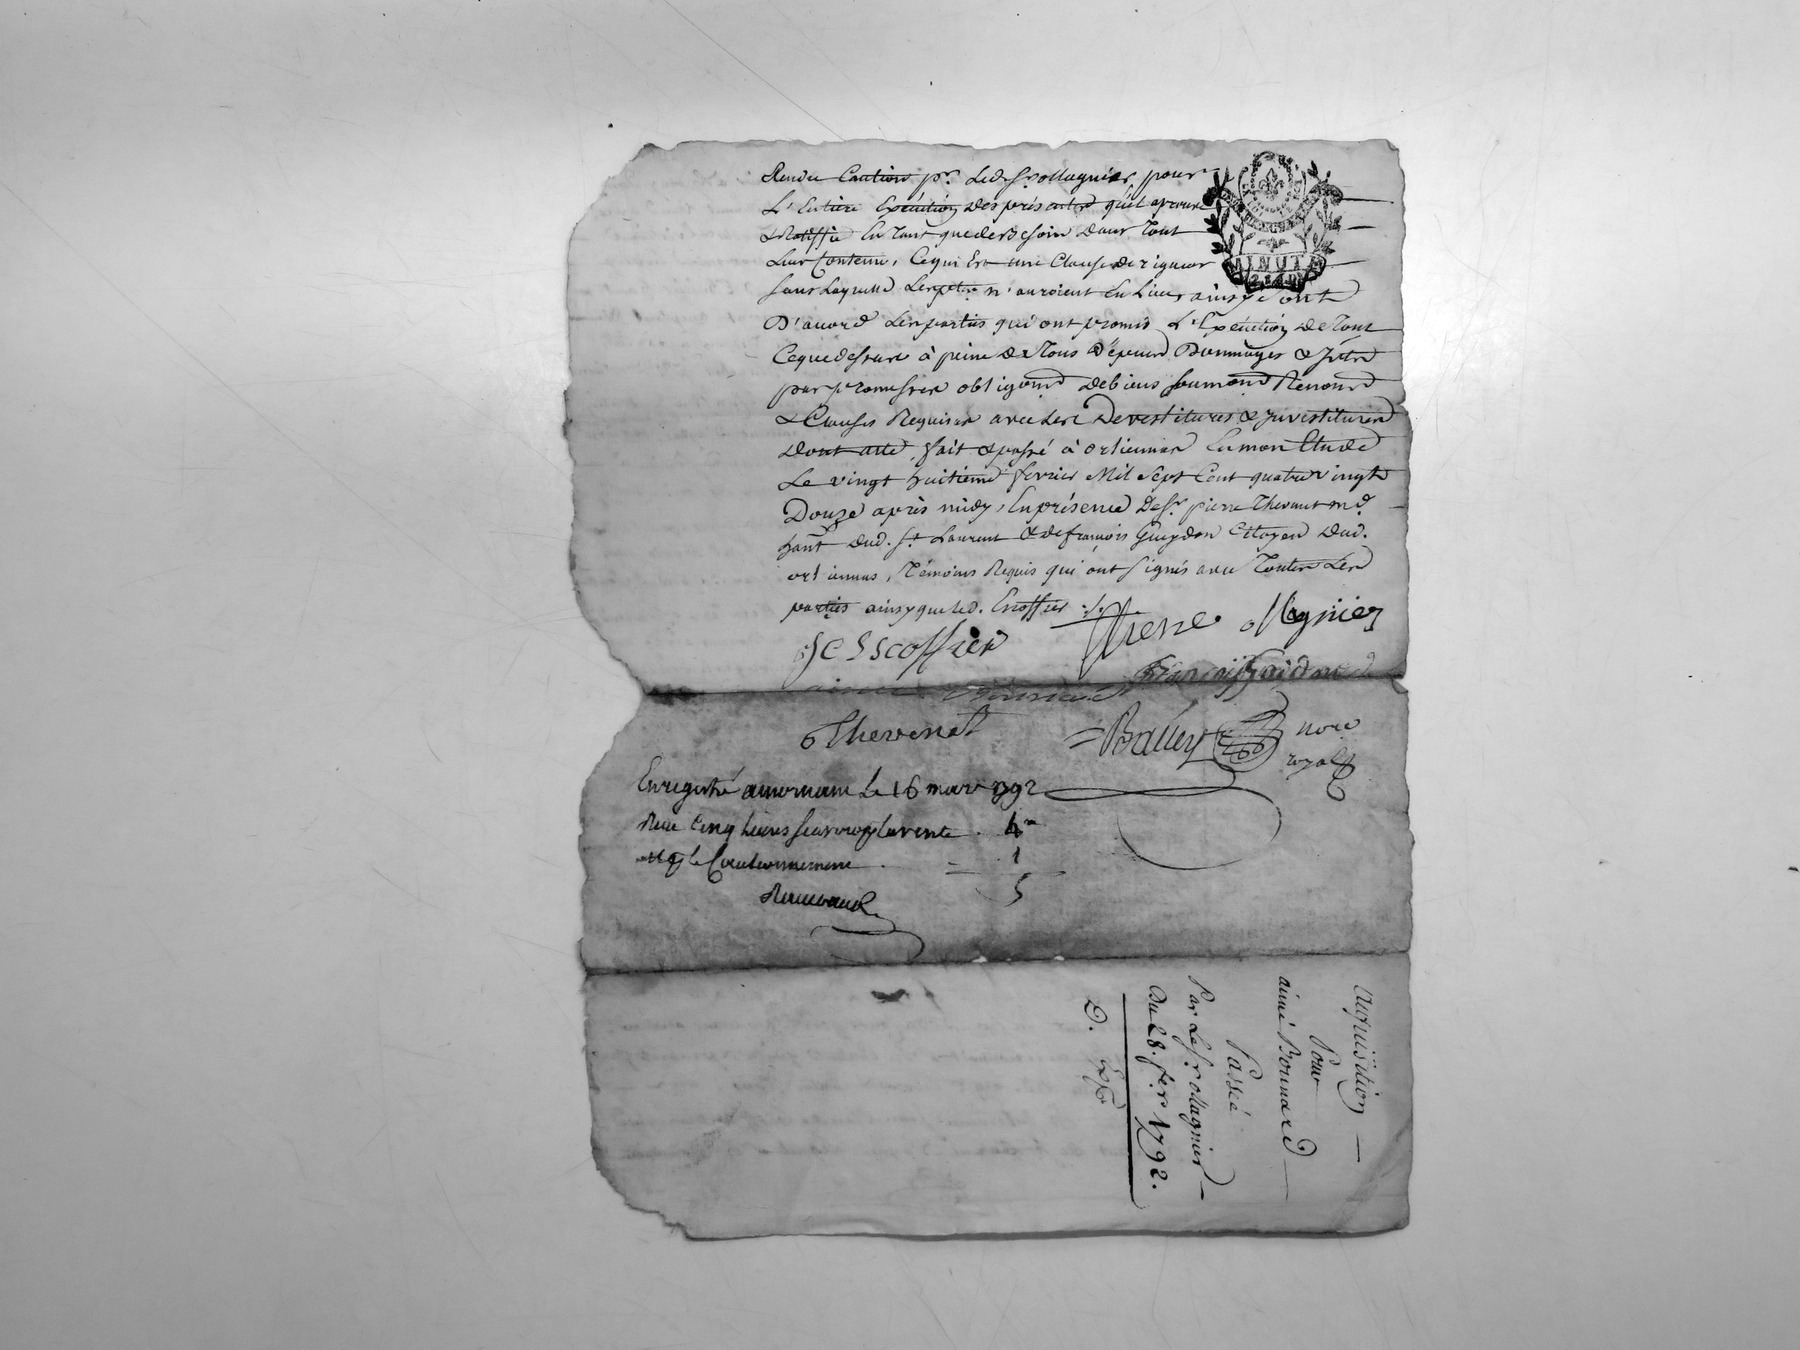 Rendu Caution pr. Led. Sr. Magnier pour
L'Entiere Exécution des présantes qu'il aprouve
& Ratiffie En Tant que de Besoin dans Tout
Leur Contenu, Ce qui Est une Clause de rigueur
sans Laquelle Les ptes n'auroient Eu Lieu, ainsy sont
D'accord Les parties qui ont promis L'Exécution de Tout
Ce que dessus à peine de Tous Dépens Dommages & Intts
par promesses obligaons de biens soumons Renons
& Clauses Requises avec Les Devestitures & Investitures
Dont acte, fait & passé à orliennas En mon Etude
Le vingt huitieme fevrier Mil Sept Cent quatre vingt
Douze après midy, En présence de Sr. pierre Thevenet md.
hant dud. St Laurent & de françois Guydon Citoyen dud.
orliennas, Témoins Requis qui ont signés avec Toutes Les
parties ainsy que led. Escoffier ./.
Escoffier
Magnier
aimé
Thevenet
Balley nore
royal
Enregistré a mornant le 16 mars 1792
Reçu Cinq livres savoir pr la vente . 4
le Cautionnement . = 1
5
MINUTE
Acquisition —
Pour
aimé Bonnard —
Passée
Par Le Sr. Magnier —
Du 28. fer. 1792.
D.